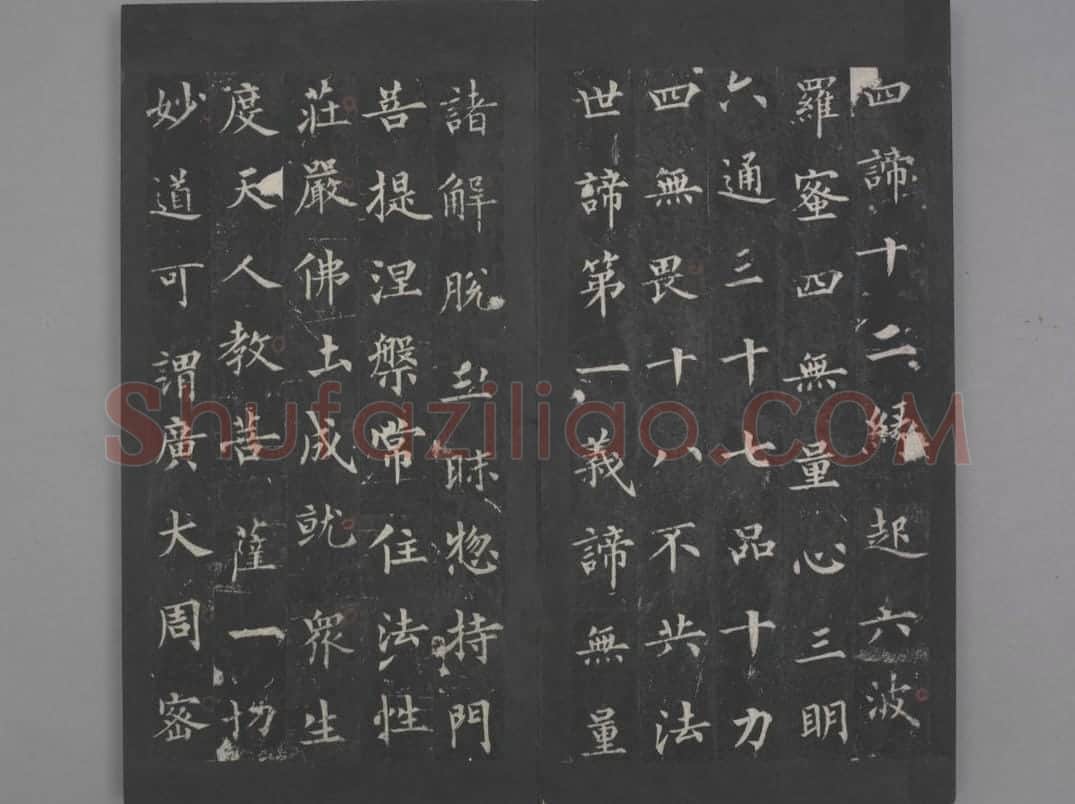 四諦十二緣起六波
羅蜜四無量心三明
六通三十七品十力
四無畏十八不共法
世諦第一義諦無量
諸解脫三昧惣持門
菩提涅槃常住法性
莊嚴佛土成就衆生
度天人教菩薩一切
妙道可謂廣大周密
Shufaziliao.COM